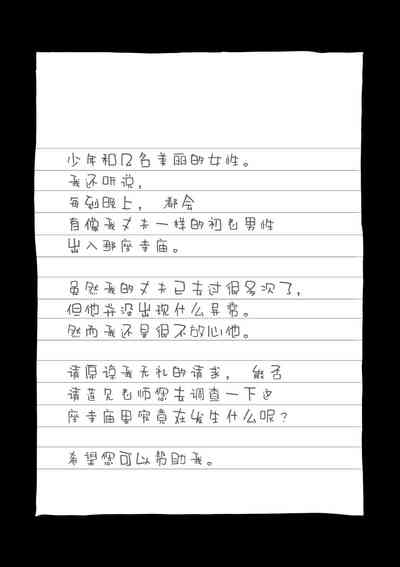 少年和几名美丽的女性。
我还听说，
每到晚上， 都会
有像我丈夫一样的初老男性
出入那座寺庙。
虽然我的丈夫已去过很多次了，
但他并没出现什么异常。
然而我还是很不放心他。
请原谅我无礼的请求， 能否
请老师您去调查一下这
座寺庙里究竟在发生什么呢？
希望您可以帮助我。